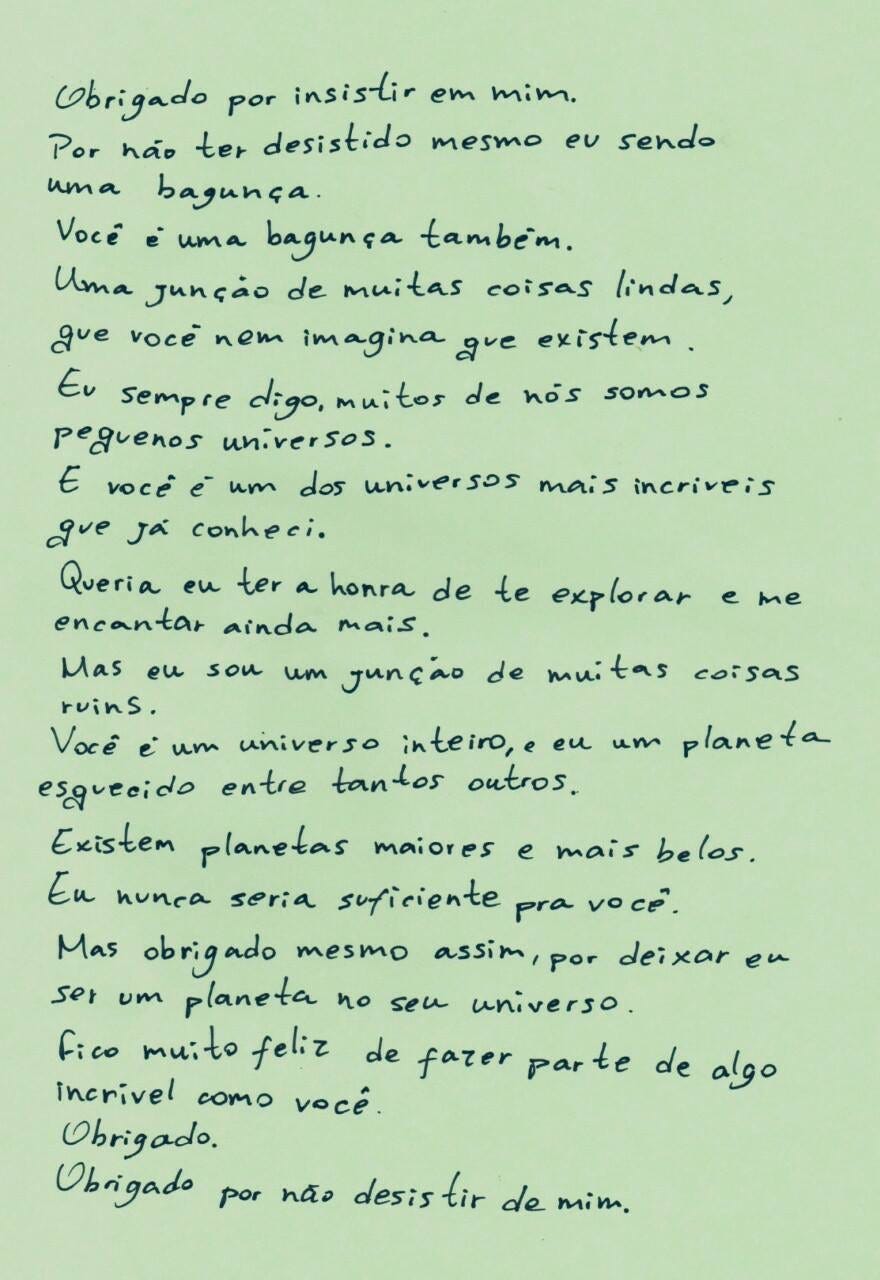 Obrigado por insistir em mim.
Por não ter desistido mesmo eu sendo
uma bagunça.
Você é uma bagunça também.
Uma junção de muitas coisas lindas,
que você nem imagina que existem.
Eu sempre digo, muitos de nós somos
pequenos universos.
E você é um dos universos mais incríveis
que já conheci.
Queria eu ter a honra de te explorar e me
encantar ainda mais.
Mas eu sou um junção de muitas coisas
ruins.
Você é um universo inteiro, e eu um planeta
esquecido entre tantos outros.
Existem planetas maiores e mais belos.
Eu nunca seria suficiente pra você.
Mas obrigado mesmo assim, por deixar eu
ser um planeta no seu universo.
Fico muito feliz de fazer parte de algo
incrível como você.
Obrigado.
Obrigado por não desistir de mim.